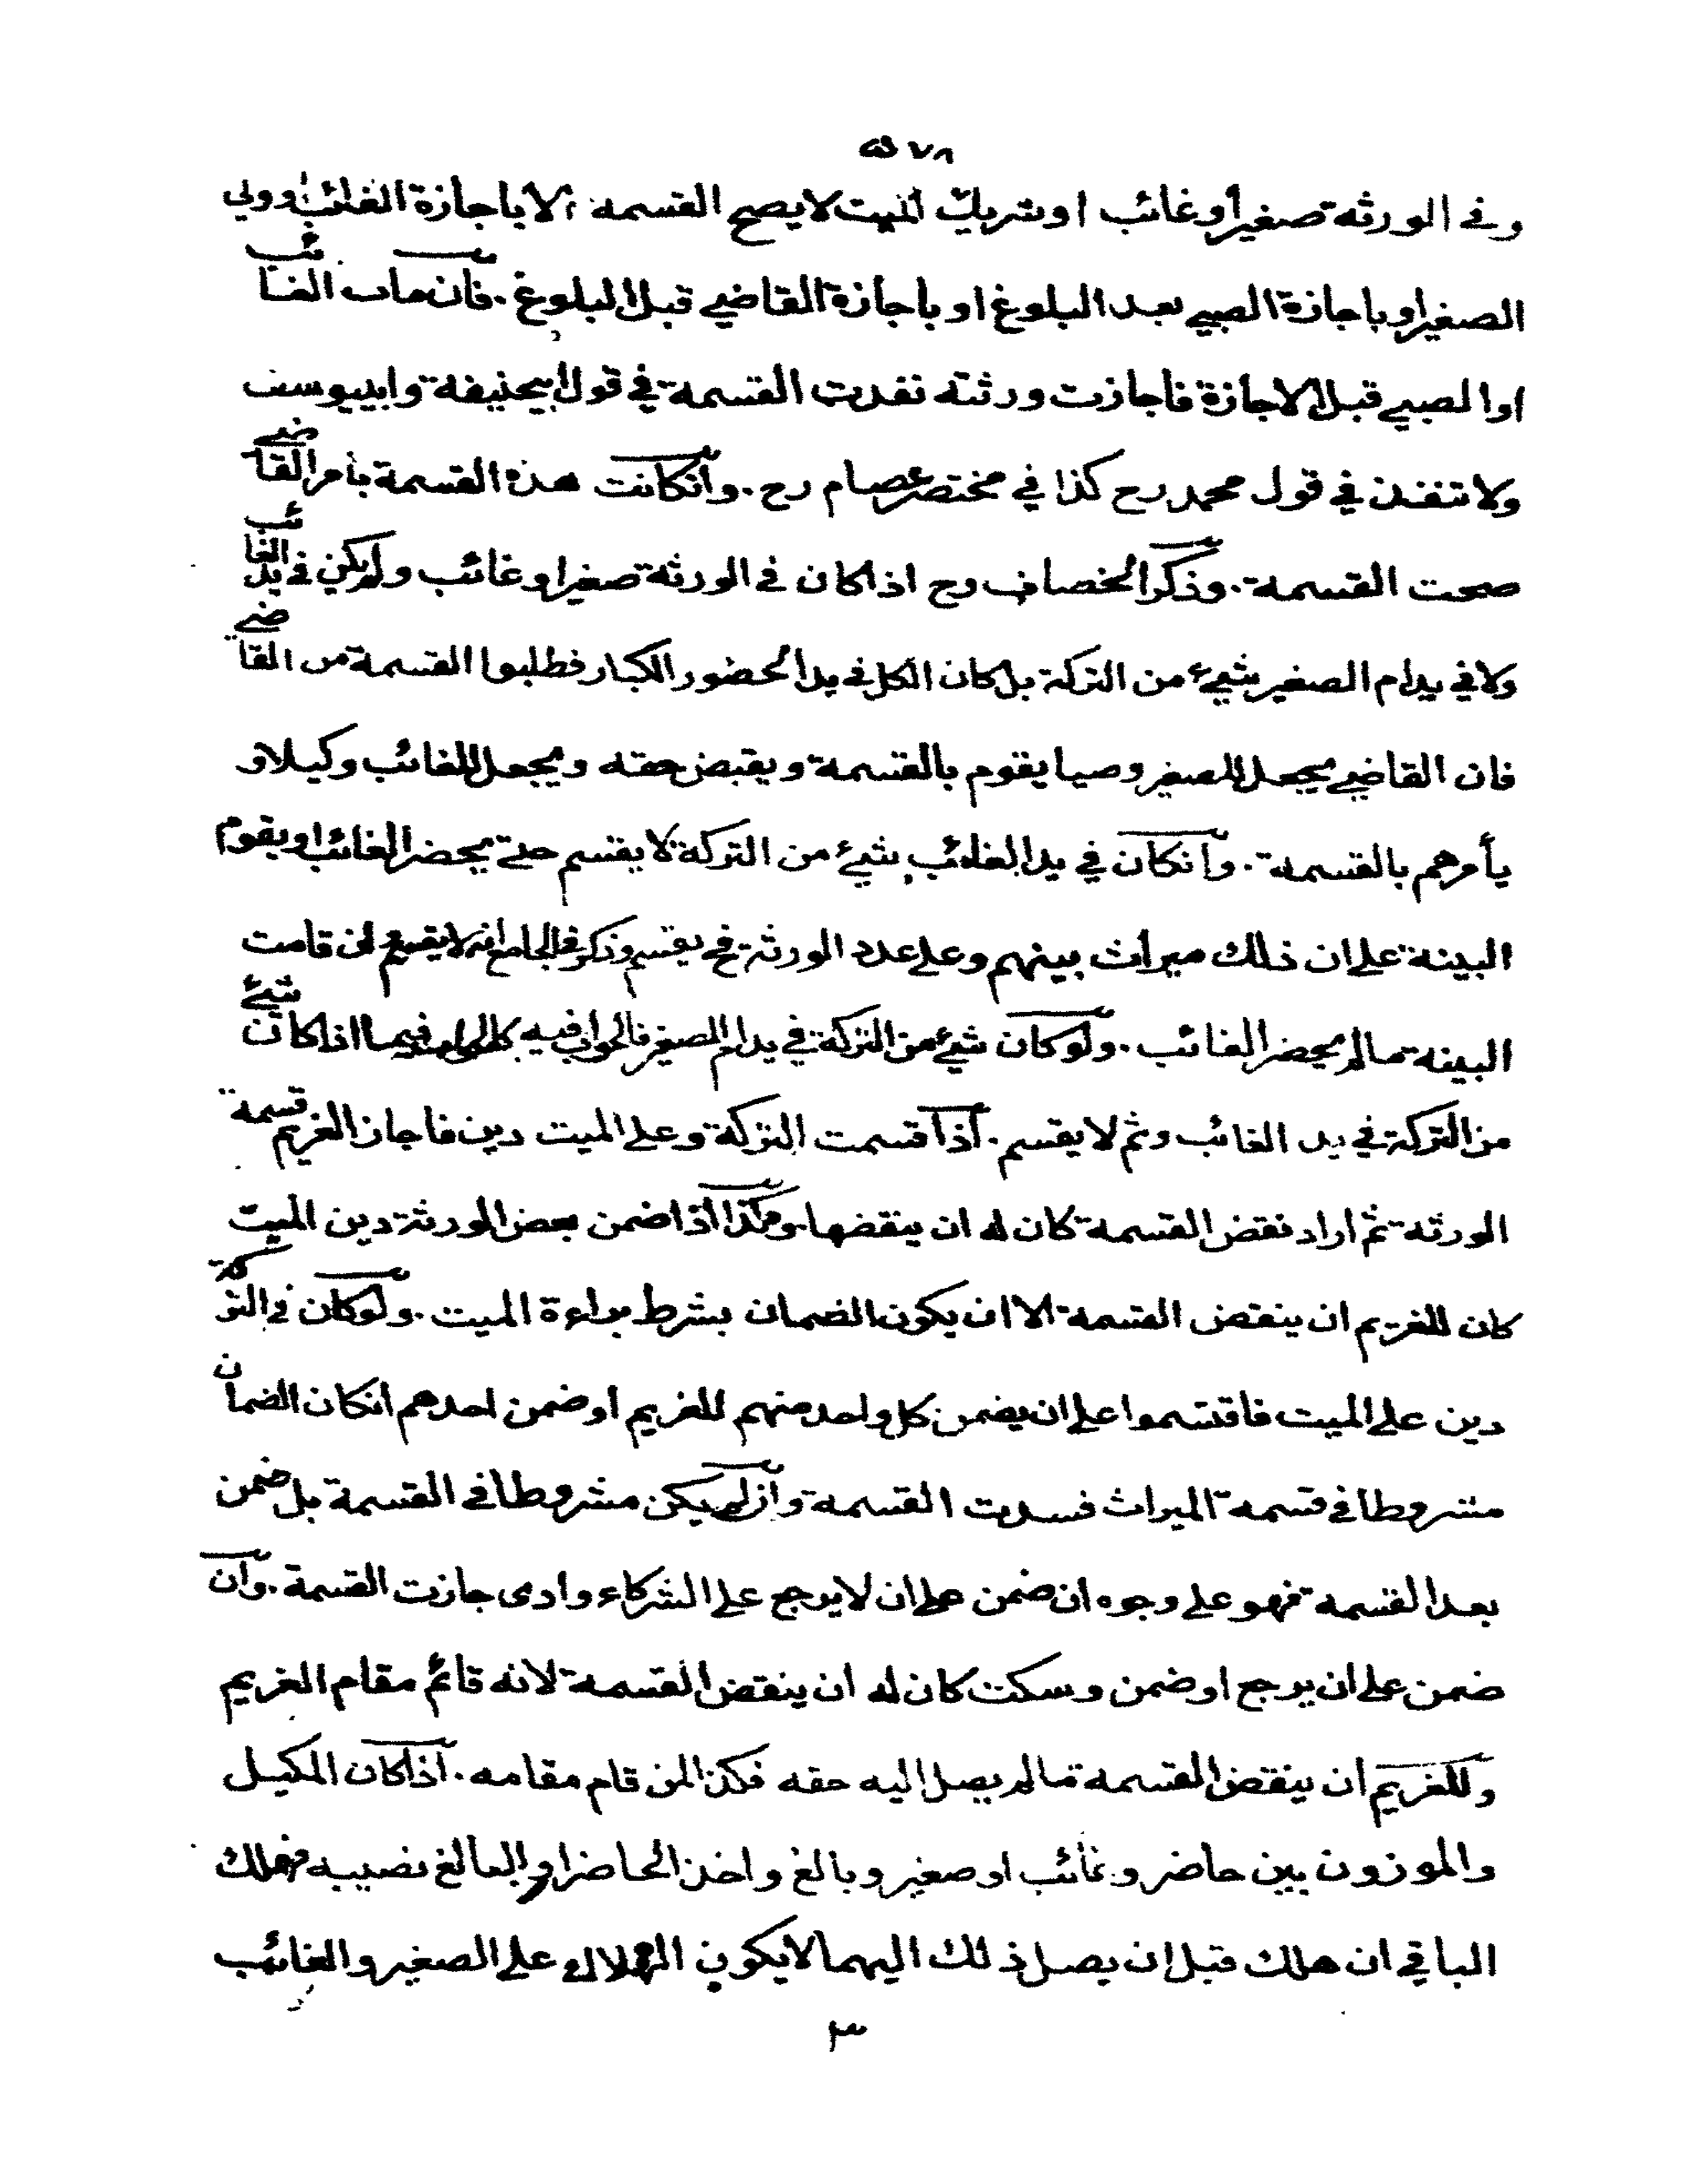 ٥٧٨
وفي الورثة صغير أو غائب او شريك الميت لا يصح القسمة الا باجازة الغائب او ولي
الصغير او باجازة الصبي بعد البلوغ او باجازة القاضي قبل البلوغ . فان مات الغائب
او الصبي قبل الاجازة فاجازت ورثته نفذت القسمة في قول ابيحنيفة وابييوسف
ولا تنفذ في قول محمد رح كذا في مختصر عصام رح . وانكانت هذه القسمة بأمر القاضي
صحت القسمة . وذكر الخصاف رح اذا كان في الورثة صغير او غائب ولم يكن في يد الغائب
ولا في يد ام الصغير شيء من التركة بل كان الكل في يد الحضور الكبار فطلبوا القسمة من القاضي
فان القاضي يجعل للصغير وصيا يقوم بالقسمة ويقبض حقه ويجعل للغائب وكيلا و
يأمرهم بالقسمة . وانكان في يد الغائب شيء من التركة لا يقسم حتى يحضر الغائب او يقوم
البينة على ان ذلك ميراث بينهم وعلى عدد الورثة فح يقسم وذكر في الجامع انه لا يقسم وان قامت
البينة ما لم يحضر الغائب . ولو كان شيء من التركة في يد ام الصغير فالجواب فيه كالجواب فيما اذا كان شيء
من التركة في يد الغائب وثم لا يقسم . اذا قسمت التركة وعلى الميت دين فاجاز الغريم قسمة
الورثة ثم اراد نقض القسمة كان له ان ينقضها وهكذا اذا ضمن بعض الورثة دين الميت
كان للغريم ان ينقض القسمة الا ان يكون الضمان بشرط براءة الميت . ولو كان في التركة
دين على الميت فاقتسموا على ان يضمن كل واحد منهم للغريم او ضمن احدهم انكان الضمان
مشروطا في قسمة الميراث فسدت القسمة وان لم يكن مشروطا في القسمة بل ضمن
بعد القسمة فهو على وجوه ان ضمن على ان لا يرجع على الشركاء وادى جازت القسمة . وان
ضمن على ان يرجع او ضمن وسكت كان له ان ينقض القسمة لانه قائم مقام الغريم
وللغريم ان ينقض القسمة ما لم يصل اليه حقه فكذا لمن قام مقامه . اذا كان المكيل
والموزون بين حاضر وغائب او صغير وبالغ واخذ الحاضر او البالغ نصيبه فهلك
الباقي ان هلك قبل ان يصل ذلك اليهما لا يكون الهلاك على الصغير والغائب